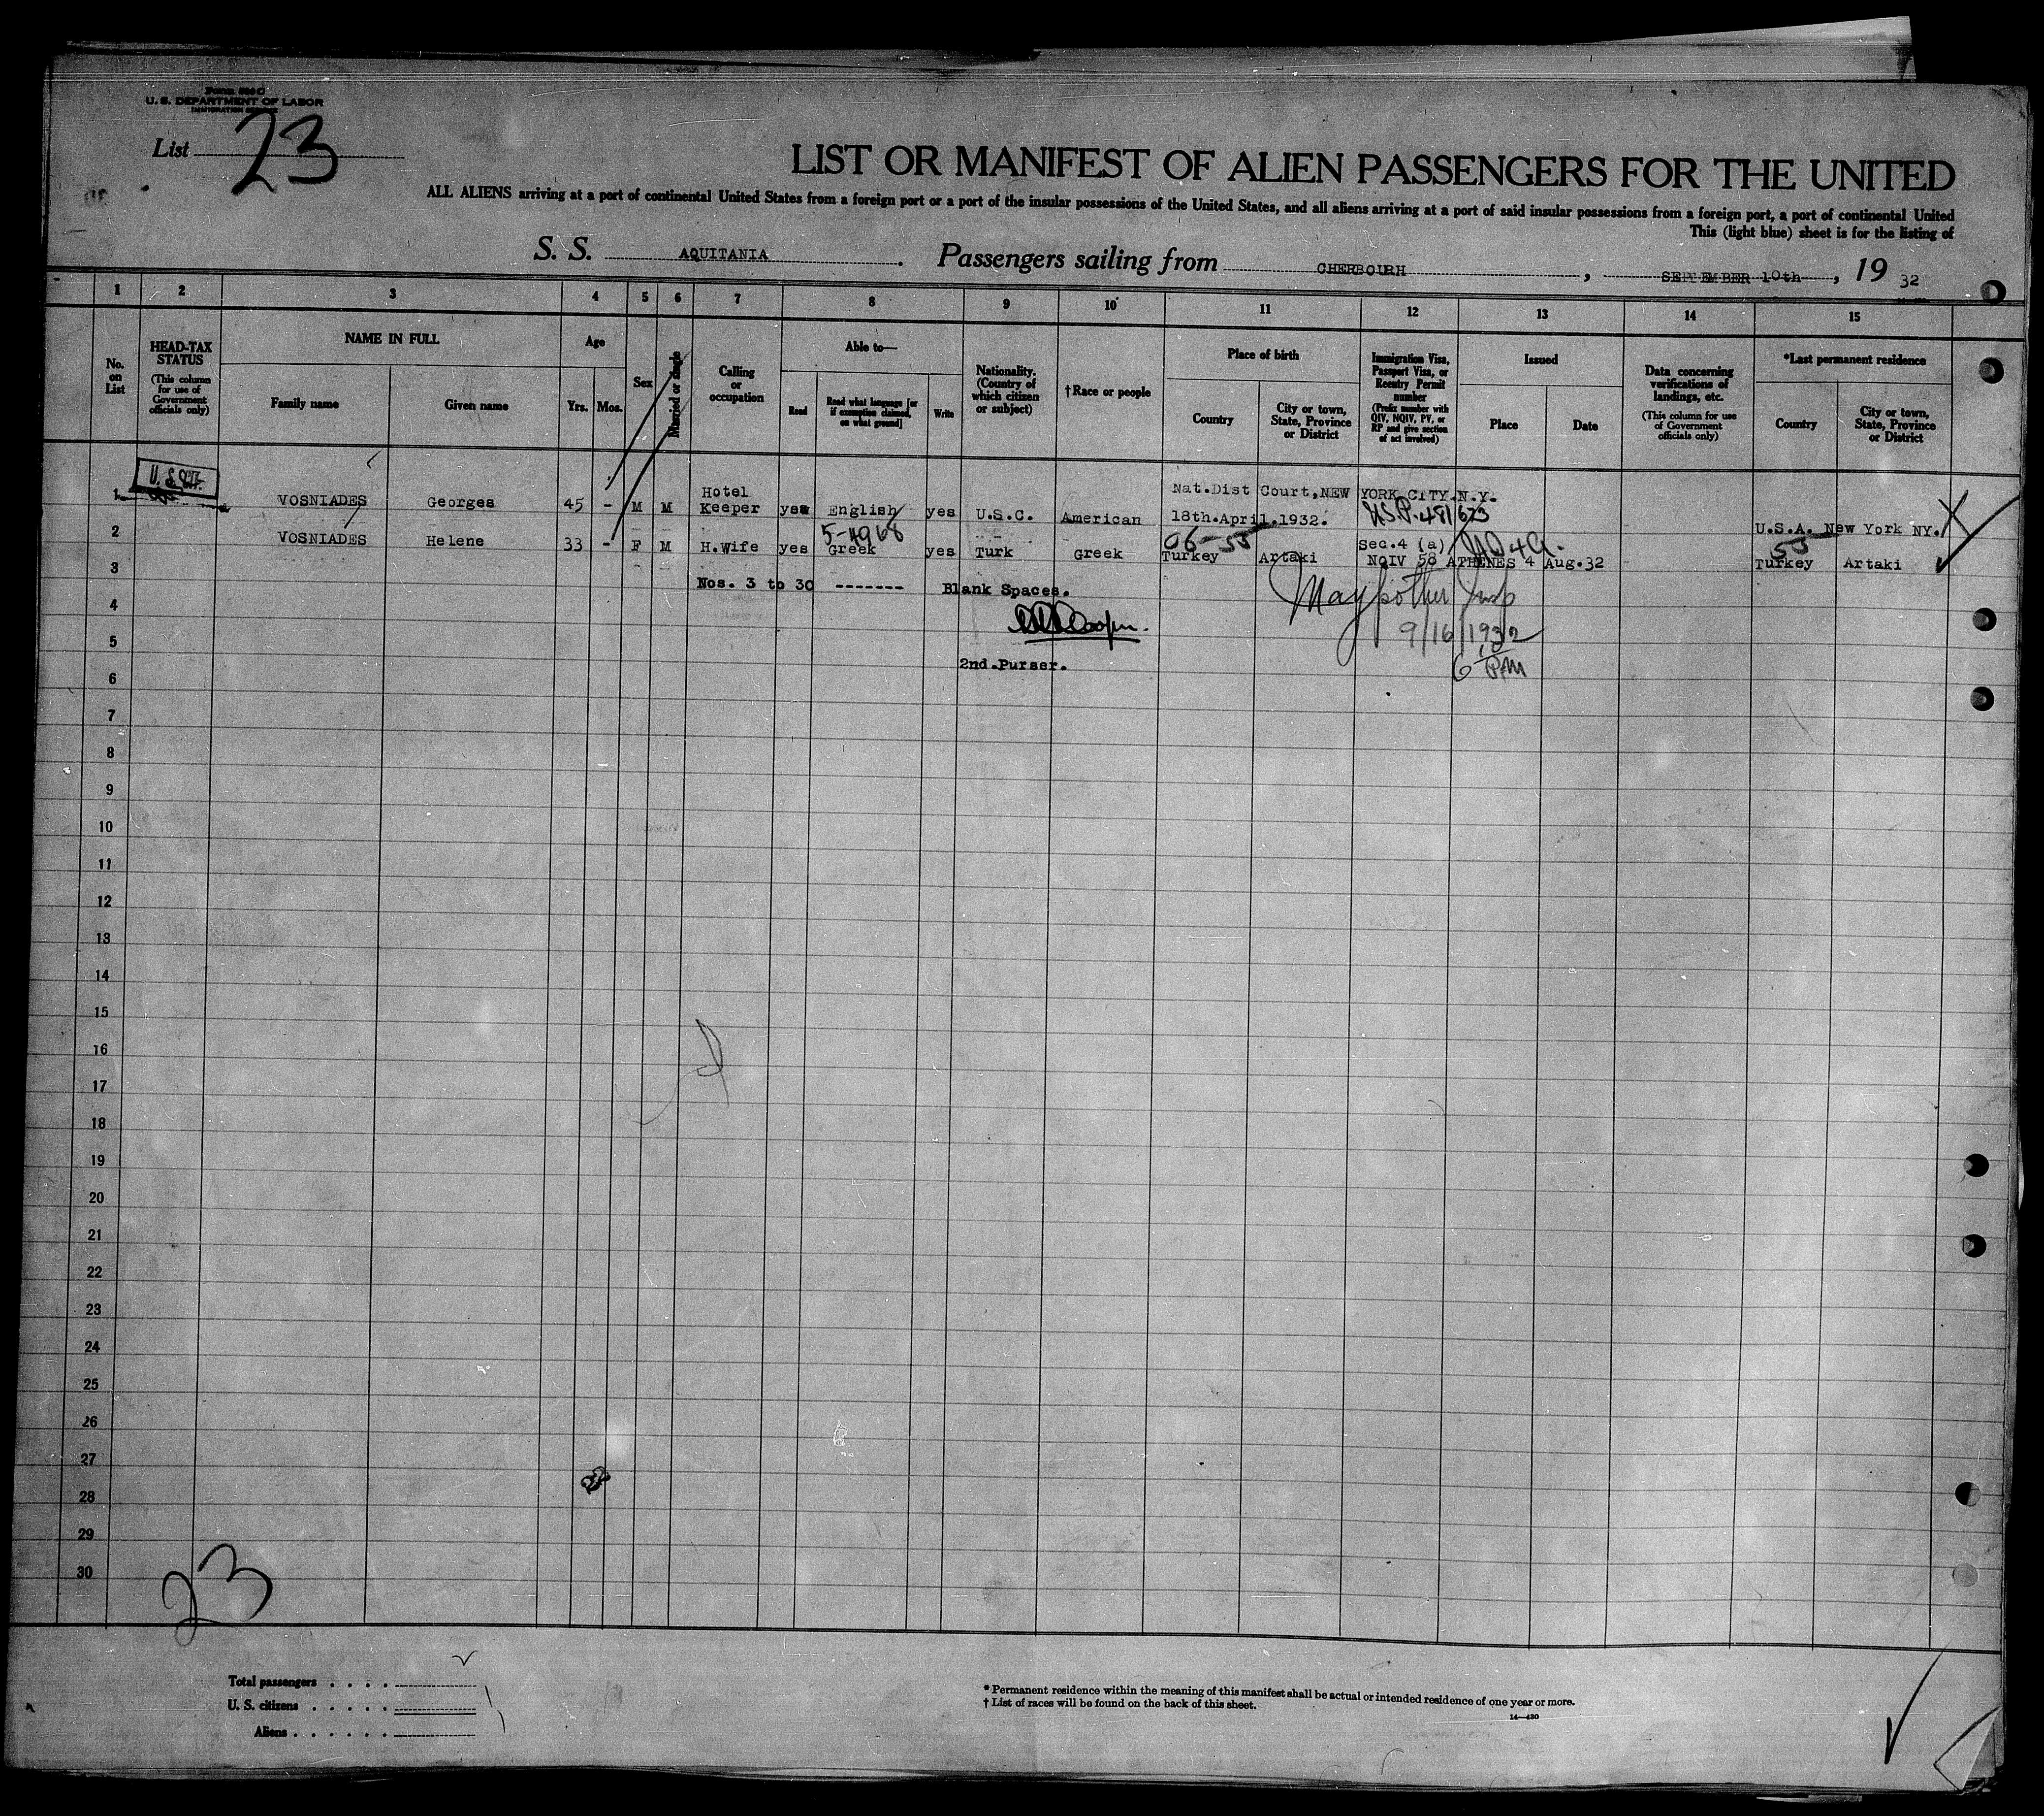 Form 500 C
U. S. DEPARTMENT OF LABOR
IMMIGRATION SERVICE
List 23
LIST OR MANIFEST OF ALIEN PASSENGERS FOR THE UNITED
ALL ALIENS arriving at a port of continental United States from a foreign port or a port of the insular possessions of the United States, and all aliens arriving at a port of said insular possessions from a foreign port, a port of continental United
This (light blue) sheet is for the listing of
S. S. AQUITANIA. Passengers sailing from CHERBOURH, SEPTEMBER 10th, 19 32
1 2 3 4 5 6 7 8 9 10 11 12 13 14 15
No. on List
HEAD-TAX STATUS
(This column for use of Government officials only)
NAME IN FULL
Family name Given name
Age
Yrs. Mos.
Sex
Married or single
Calling or occupation
Able to—
Read Read what language [or if exemption claimed, on what ground] Write
Nationality. (Country of which citizen or subject)
†Race or people
Place of birth
Country City or town, State, Province or District
Immigration Visa, Passport Visa, or Reentry Permit number
(Prefix number with QIV, NQIV, PV, or RP and give section of act involved)
Issued
Place Date
Data concerning verifications of landings, etc.
(This column for use of Government officials only)
*Last permanent residence
Country City or town, State, Province or District
1 VOSNIADES Georges 45 - M M Hotel Keeper yes English yes U.S.C. American Nat.Dist Court, NEW YORK CITY.N.Y. 18th.April,1932. U.S.P. 481623 U.S.A. New York NY.
5-4968 06-55 55
2 VOSNIADES Helene 33 - F M H.Wife yes Greek yes Turk Greek Turkey Artaki Sec.4 (a) NQIV 58 ATHENES 4 Aug.32 Turkey Artaki
3 Nos. 3 to 30 ------- Blank Spaces.
4
5 9/16/1932
2nd.Purser. 6 PM
6
7
8
9
10
11
12
13
14
15
16
17
18
19
20
21
22
23
24
25
26
27
28
29
30
23
Total passengers . . . .
U. S. citizens . . . . .
Aliens . . . . . .
* Permanent residence within the meaning of this manifest shall be actual or intended residence of one year or more.
† List of races will be found on the back of this sheet.
14—430